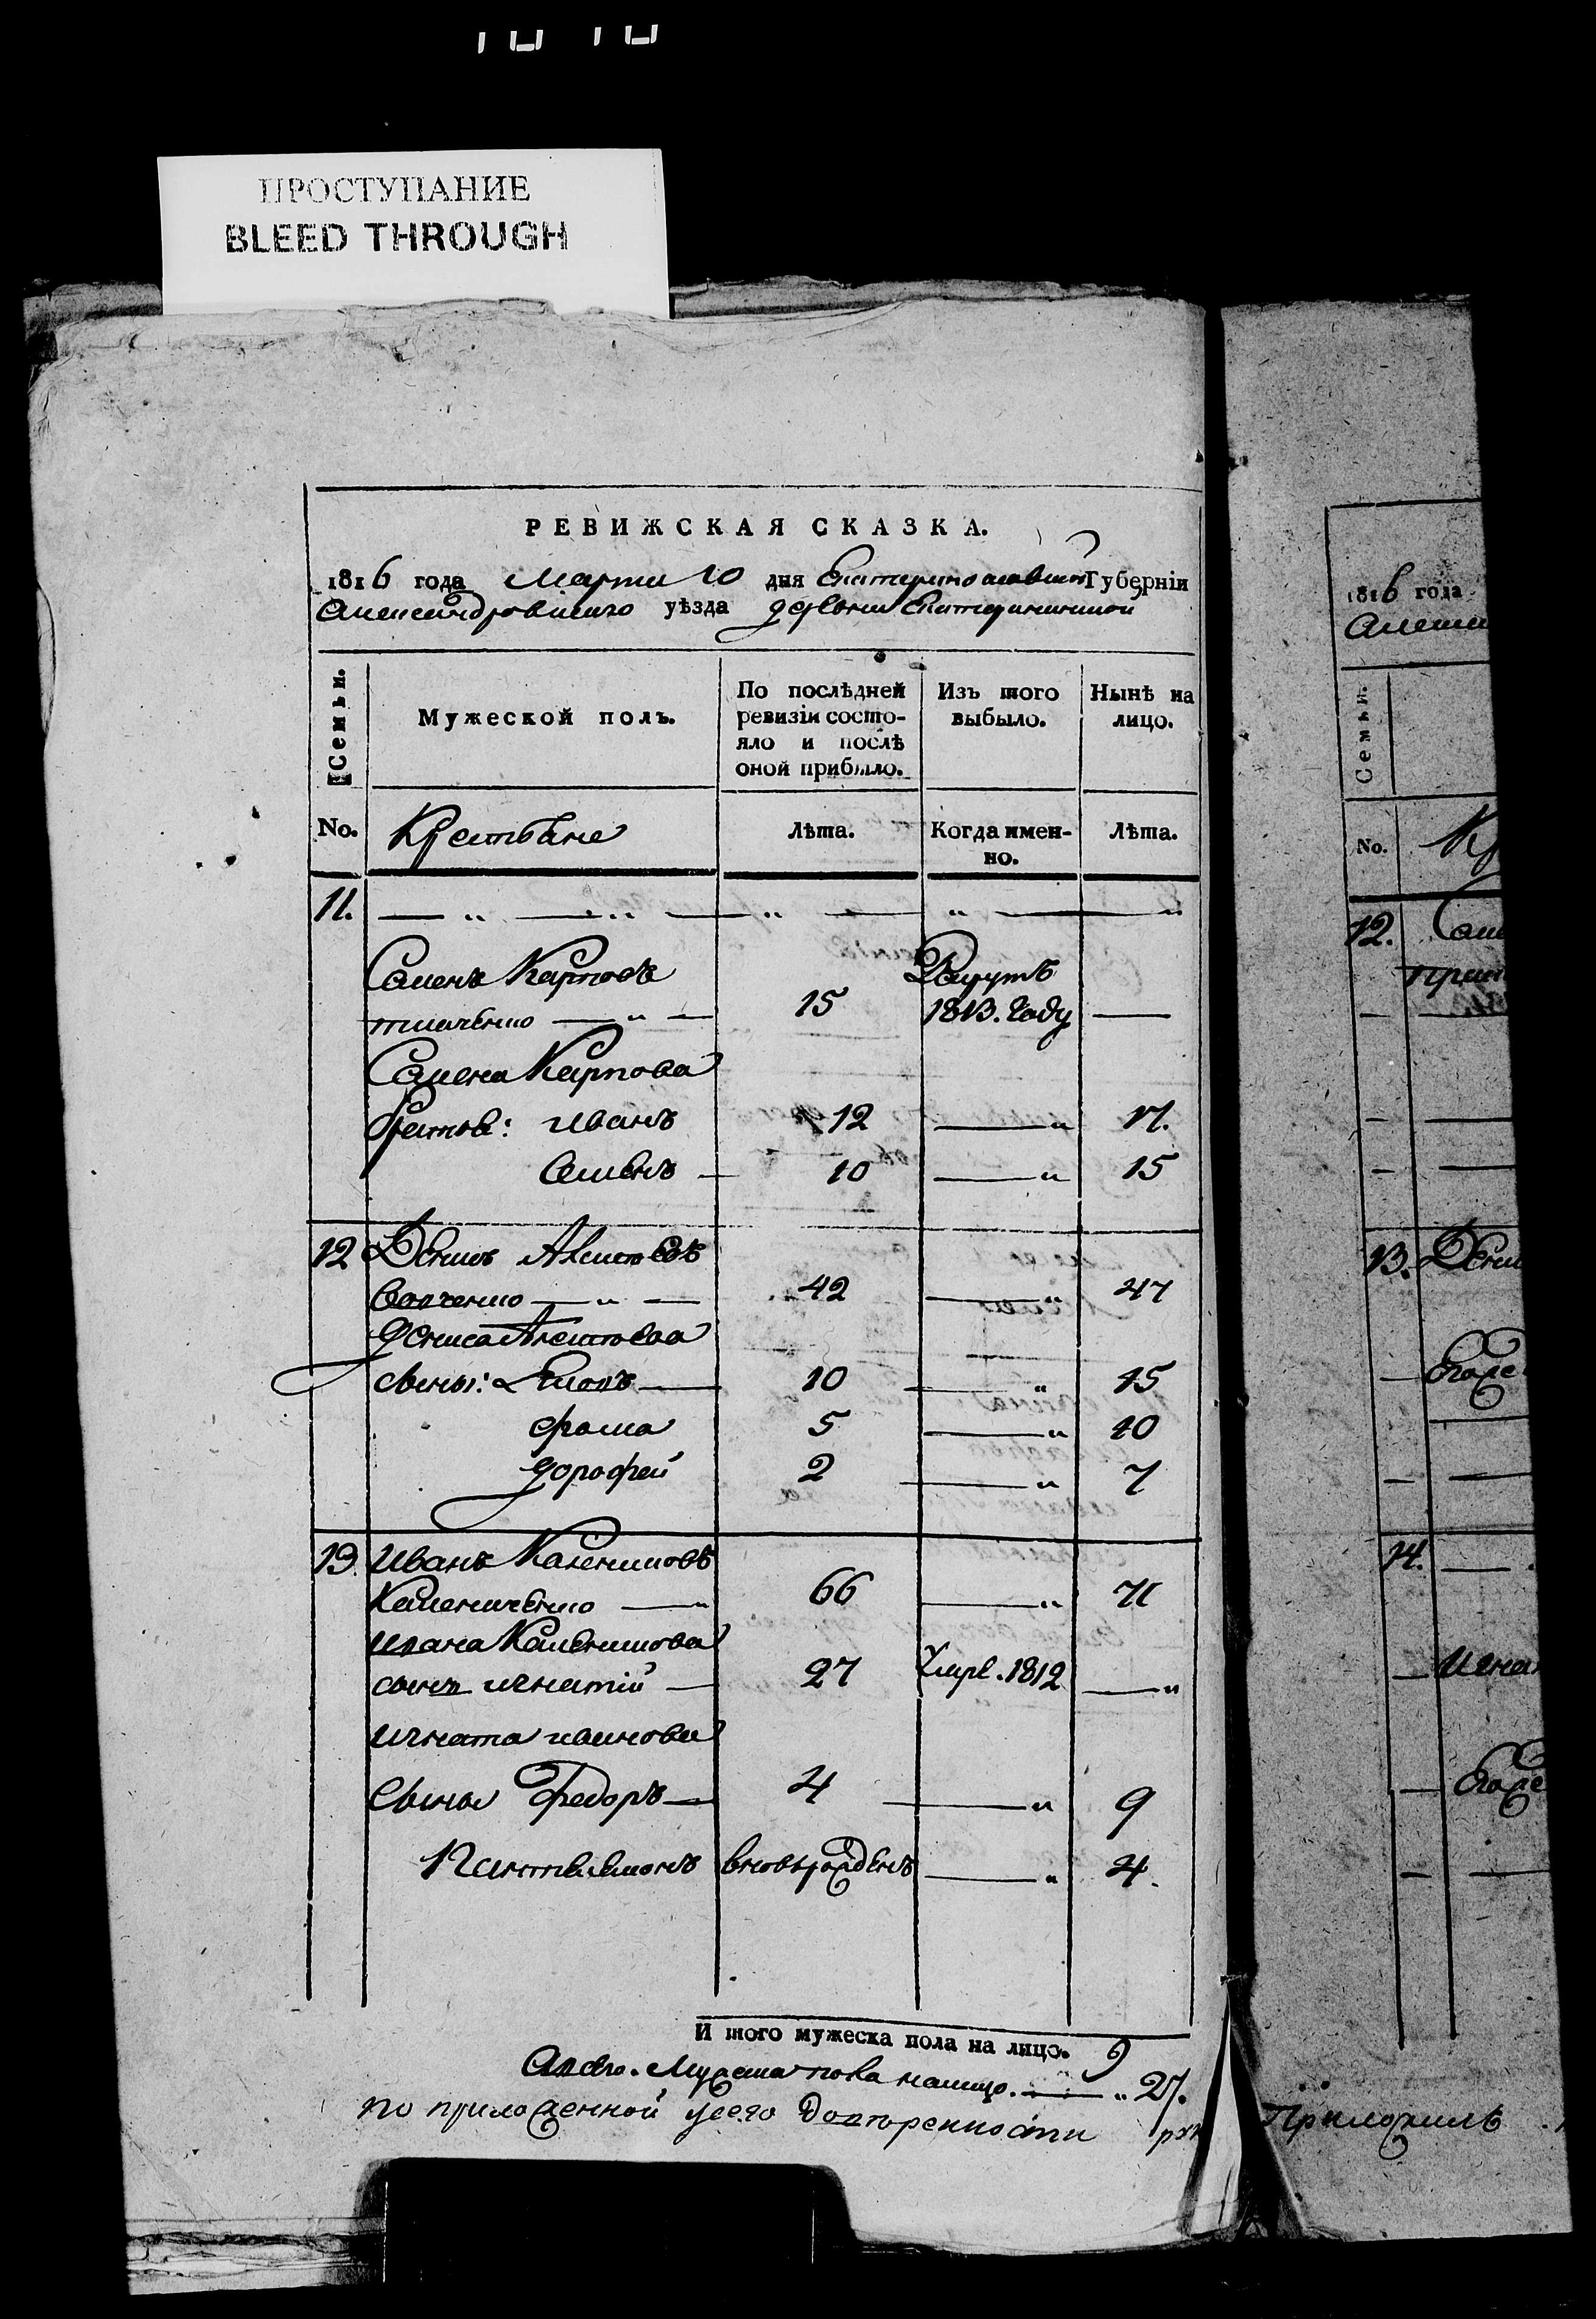 ПРОСТУПАНИЕ
BLEED THROUGH
РЕВИЖСКАЯ СКАЗКА.
1816 года Марта 10 дня Екатеринославской Губерніи
Александровскаго уѣзда деревни Екатерининской
Семьи. Мужеской полъ. По послѣдней ревизіи состояло и послѣ оной прибыло. Изъ того выбыло. Нынѣ на лицо.
No. Крестьяне Лѣта. Когда именно. Лѣта.
11.
Саменъ Карповъ Рекрутъ
ткаченко 15 1813. году
Самена Карпова
братья: иванъ 12 17.
Семенъ 10 15
12 Денисъ Алексѣевъ
42 47
дениса Алексѣева
сыны: 10 15
фома 5 10
дорофей 2 7
13. иванъ Калениковъ
Каленичѣнко 66 71
ивана Каленикова
сынъ игнатій 27 умре. 1812
игната иванова
сыны Федоръ 4 9
Пантелимонъ вновьрожденъ 4.
И того мужеска пола на лицо. 9
Всего. Мужеска пола налицо. 27.
по приложенной у сего довѣренности
1816 года
No.
12.
13.
14.
Приложилъ